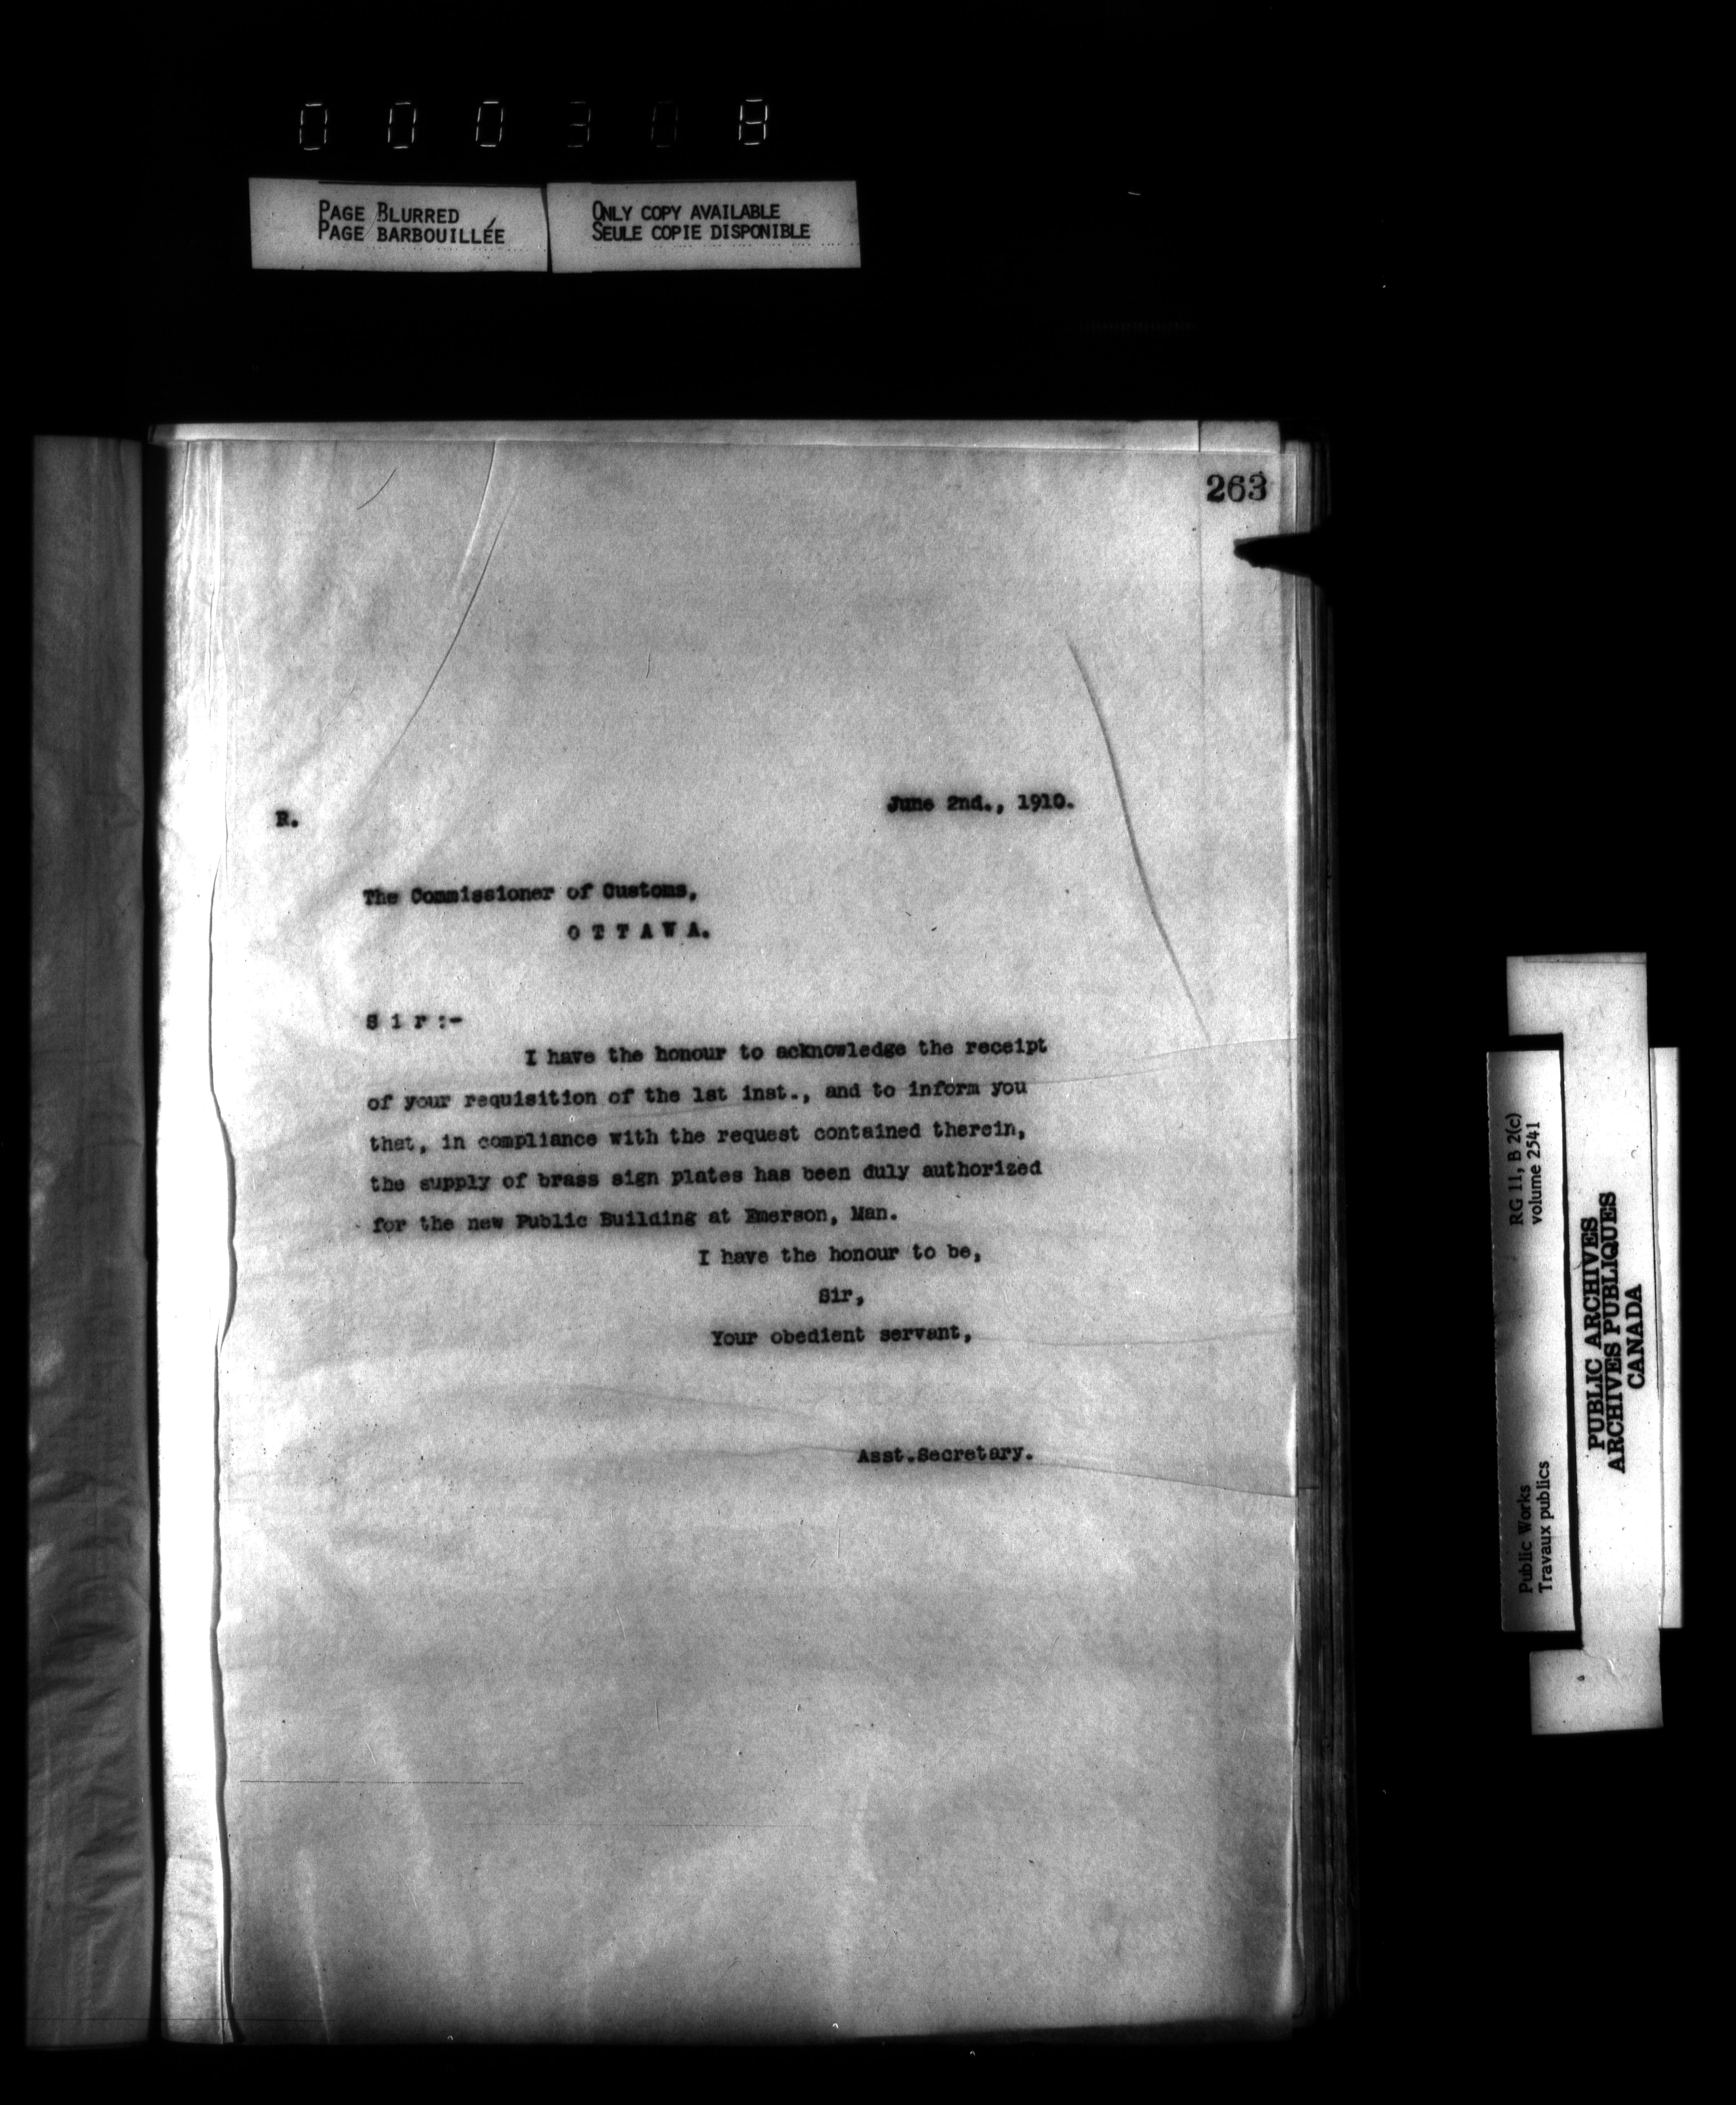 000308
PAGE BLURRED
PAGE BARBOUILLÉE
ONLY COPY AVAILABLE
SEULE COPIE DISPONIBLE
263
June 2nd., 1910.
R.
The Commissioner of Customs,
O T T A W A.
S i r :-
I have the honour to acknowledge the receipt
of your requisition of the 1st inst., and to inform you
that, in compliance with the request contained therein,
the supply of brass sign plates has been duly authorized
for the new Public Building at Emerson, Man.
I have the honour to be,
Sir,
Your obedient servant,
Asst.Secretary.
RG 11, B 2(c)
volume 2541
Public Works
Travaux publics
PUBLIC ARCHIVES
ARCHIVES PUBLIQUES
CANADA